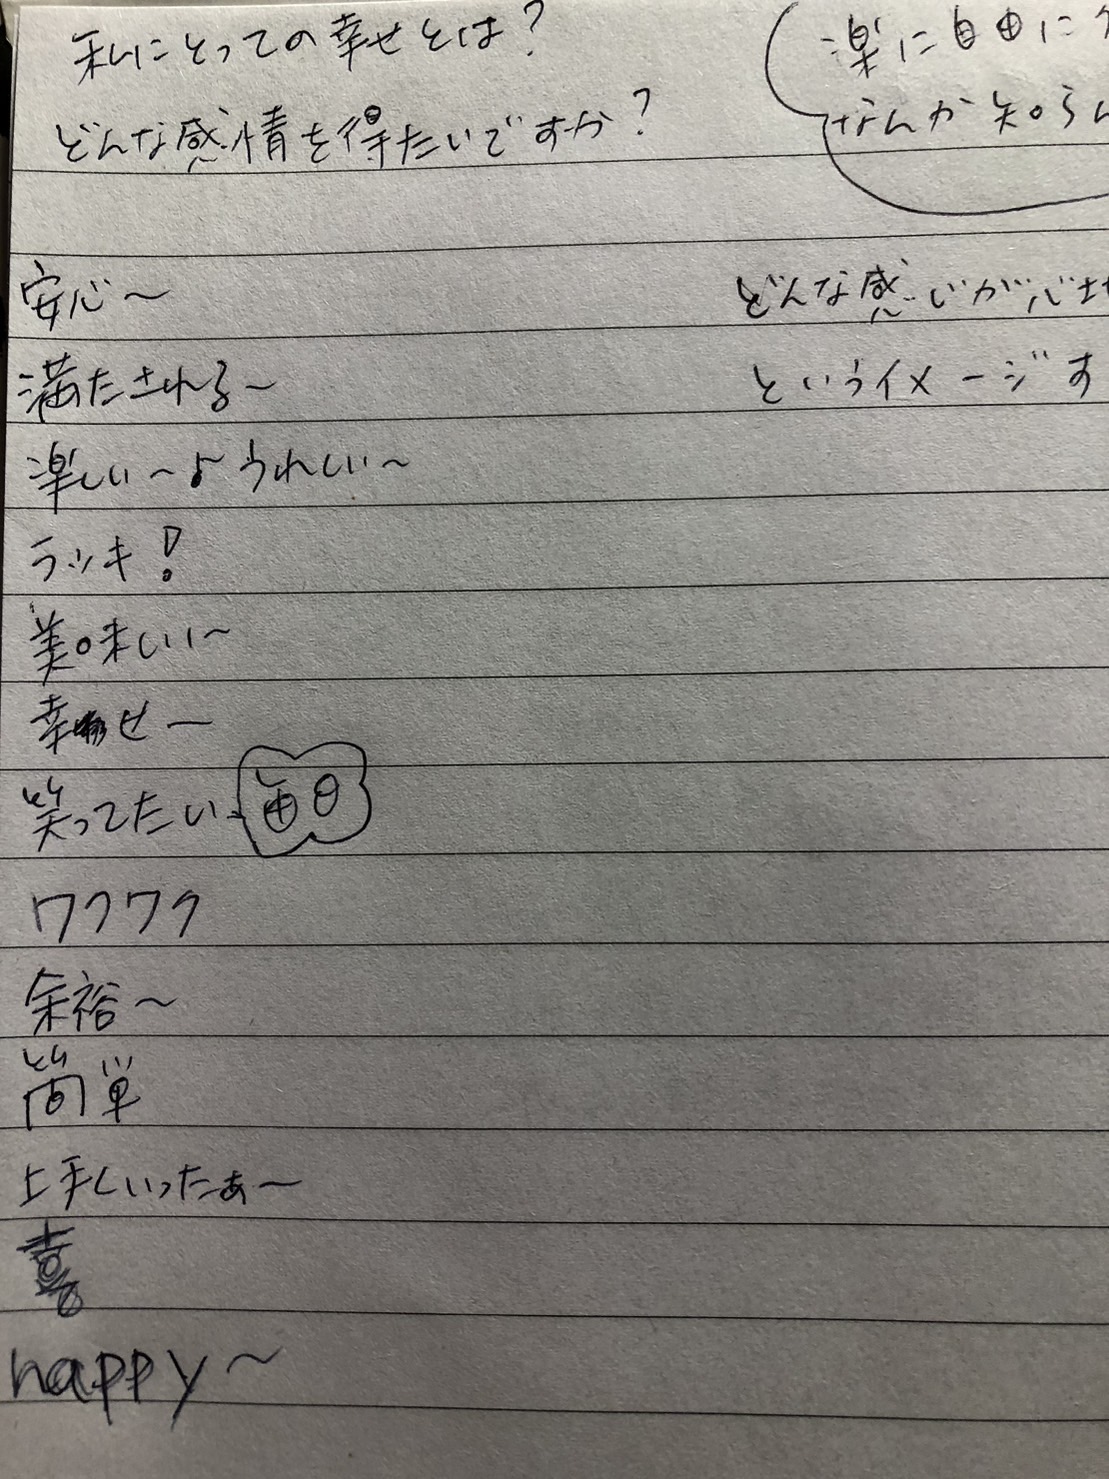 私にとっての幸せとは？
どんな感情を得たいですか？
楽に自由に
なんか知らん
安心〜
満たされる〜
楽しい〜♪うれしい〜
ラッキ！
美味しい〜
幸せ〜
笑ってたい
ワクワク
余裕〜
簡単
上手くいったぁ〜
happy〜
どんな感じが心地
というイメージす